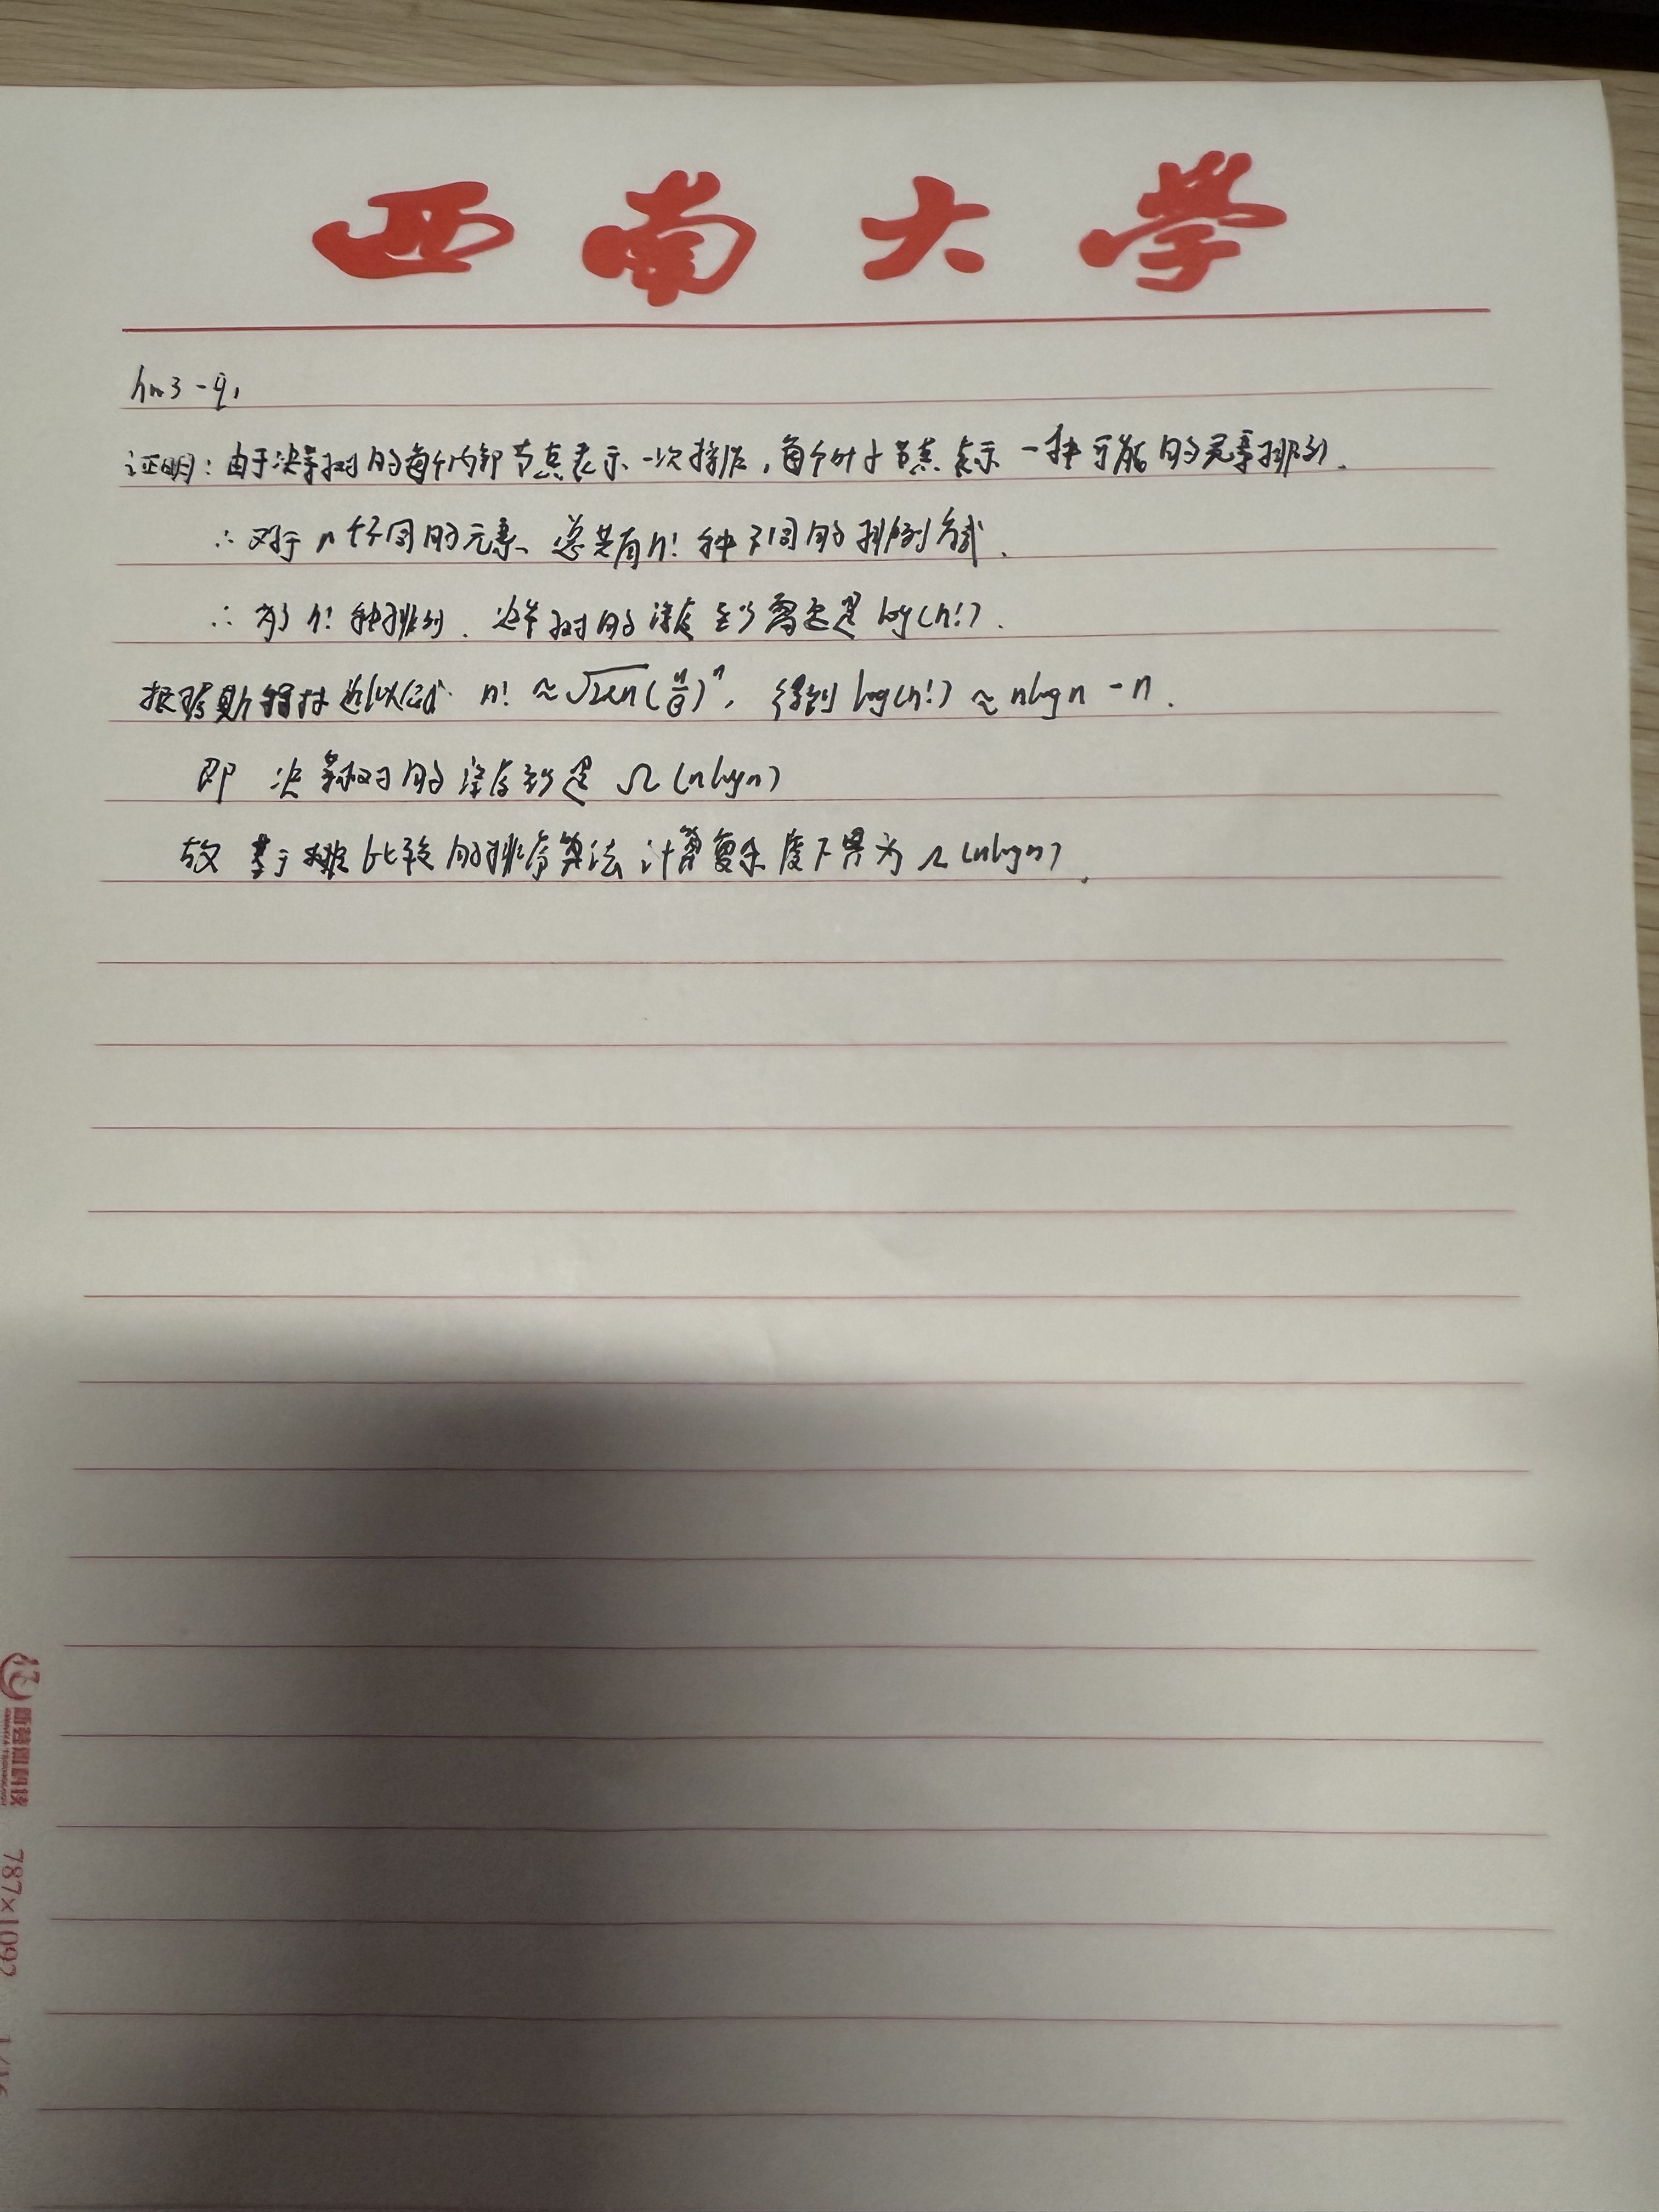 西南大学
hw3-q1
证明：由于决策树的每个内部节点表示一次操作，每个叶子节点表示一种可能的元素排列.
∴ 对于n个不同的元素、总共有n! 种不同的排列方式.
∴ 为了n! 种排列. 这棵树的深度至少需要是log(n!).
根据斯特林近似公式 n! ≈ √2πn(n/e)ⁿ, 得到 log(n!) ≈ nlogn - n.
即 决策树的深度至少是 Ω(nlogn)
故 基于比较的排序算法计算复杂度下界为Ω(nlogn).
787×1092